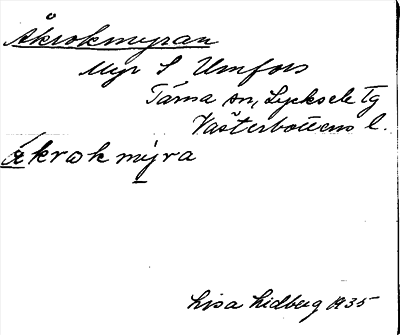 Åkrokmyran
Myr S Umfors
Tärna sn, Lycksele Tg
Västerbottens l.
åkrokmyra
Lisa Lidberg 1935